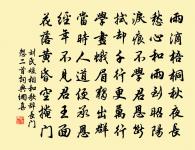 雨滴梧桐秋夜長
愁心和雨到昭陽
淚痕不學君恩斷
拭却千行更萬行
學畫蛾眉獨出群
當時人道便承恩
經年不見君王面
花落黃昏空掩門
劉氏媛相和歌辭長門
怨二首詞典網書